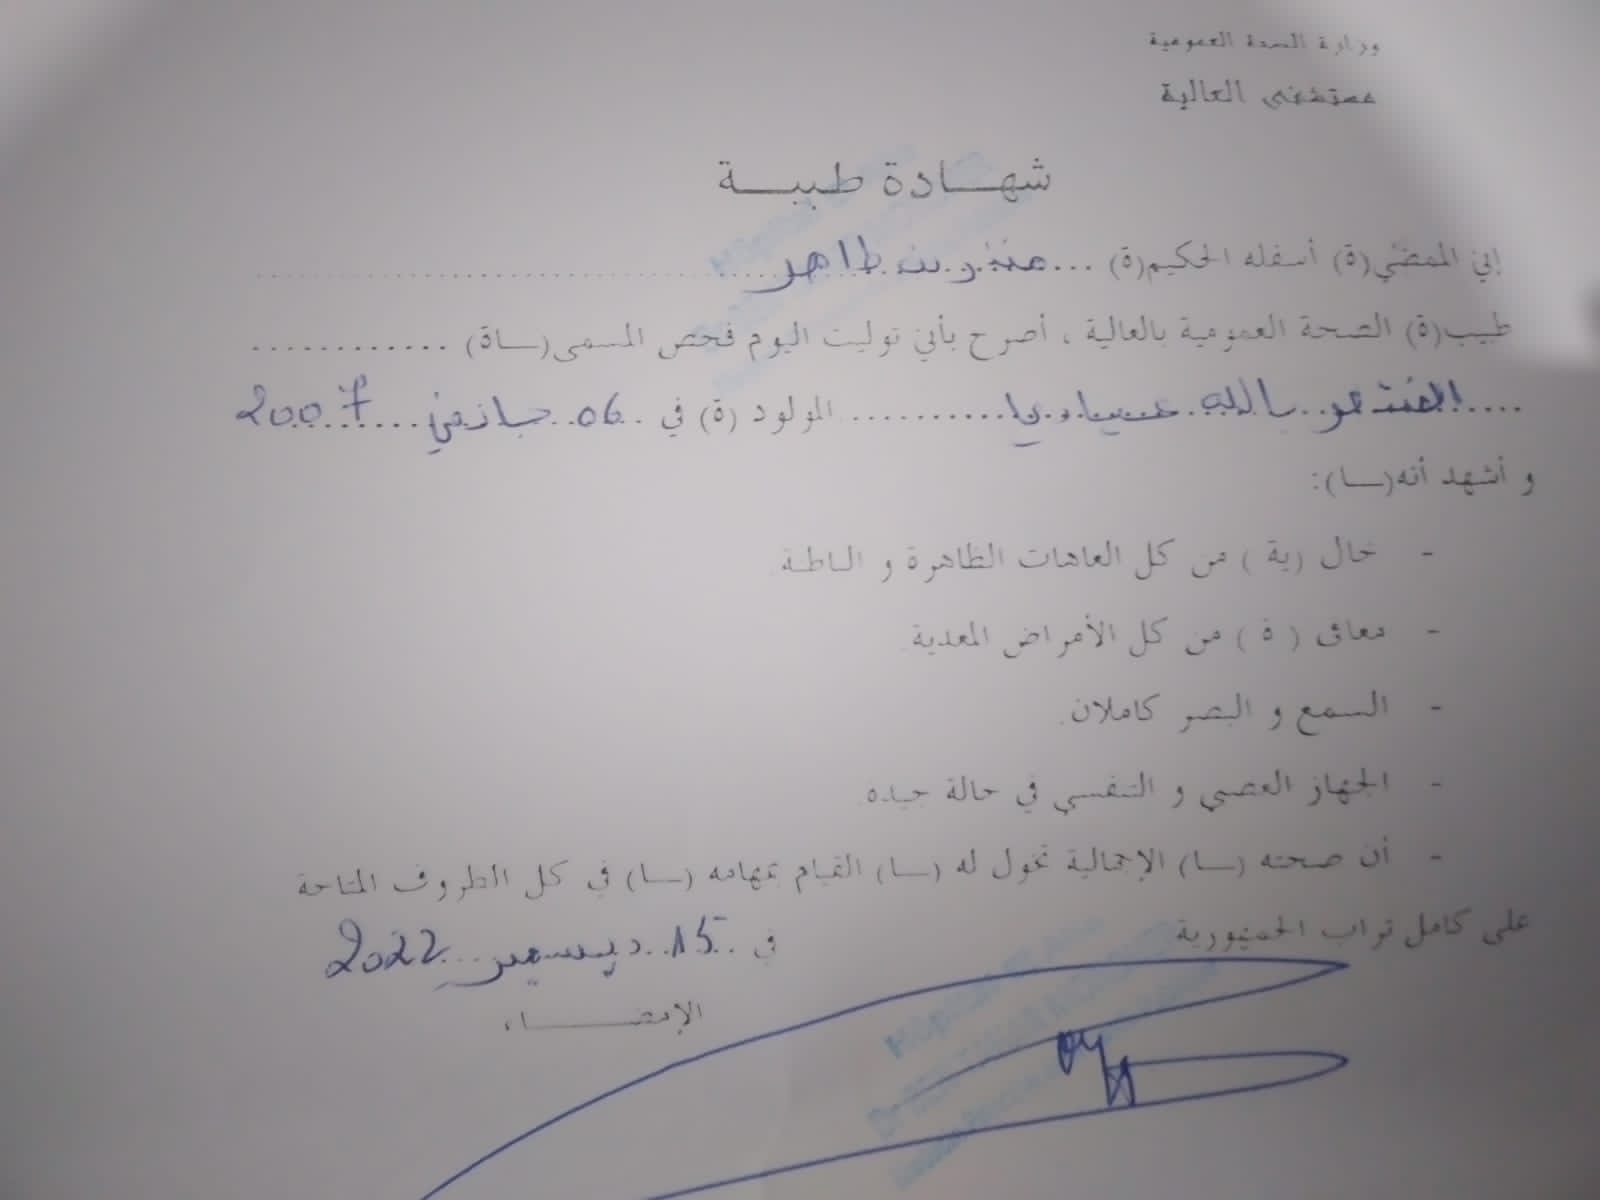 وزارة الصحة العمومية
مستشفى العالية
شهـــادة طبيـــة
إني الممضي(ة) أسفله الحكيم(ة) ... منذر بن طاهر ........................
طبيب(ة) الصحة العمومية بالعالية ، أصرح بأني توليت اليوم فحص المسمى(ــاة) ............
.... المنتصر بالله عيادي ............ المولود (ة) في .. 06 جانفي .... 2007
و أشهد أنه(ــا):
- خال (ية ) من كل العاهات الظاهرة و الباطنة.
- معافى ( ة ) من كل الأمراض المعدية.
- السمع و البصر كاملان.
- الجهاز العصبي و التنفسي في حالة جيدة.
- أن صحته (ــا) الإجمالية تخول له (ــا) القيام بمهامه (ــا) في كل الظروف المتاحة
على كامل تراب الجمهورية
في .. 15 ديسمبر ... 2022
الإمضـــــاء